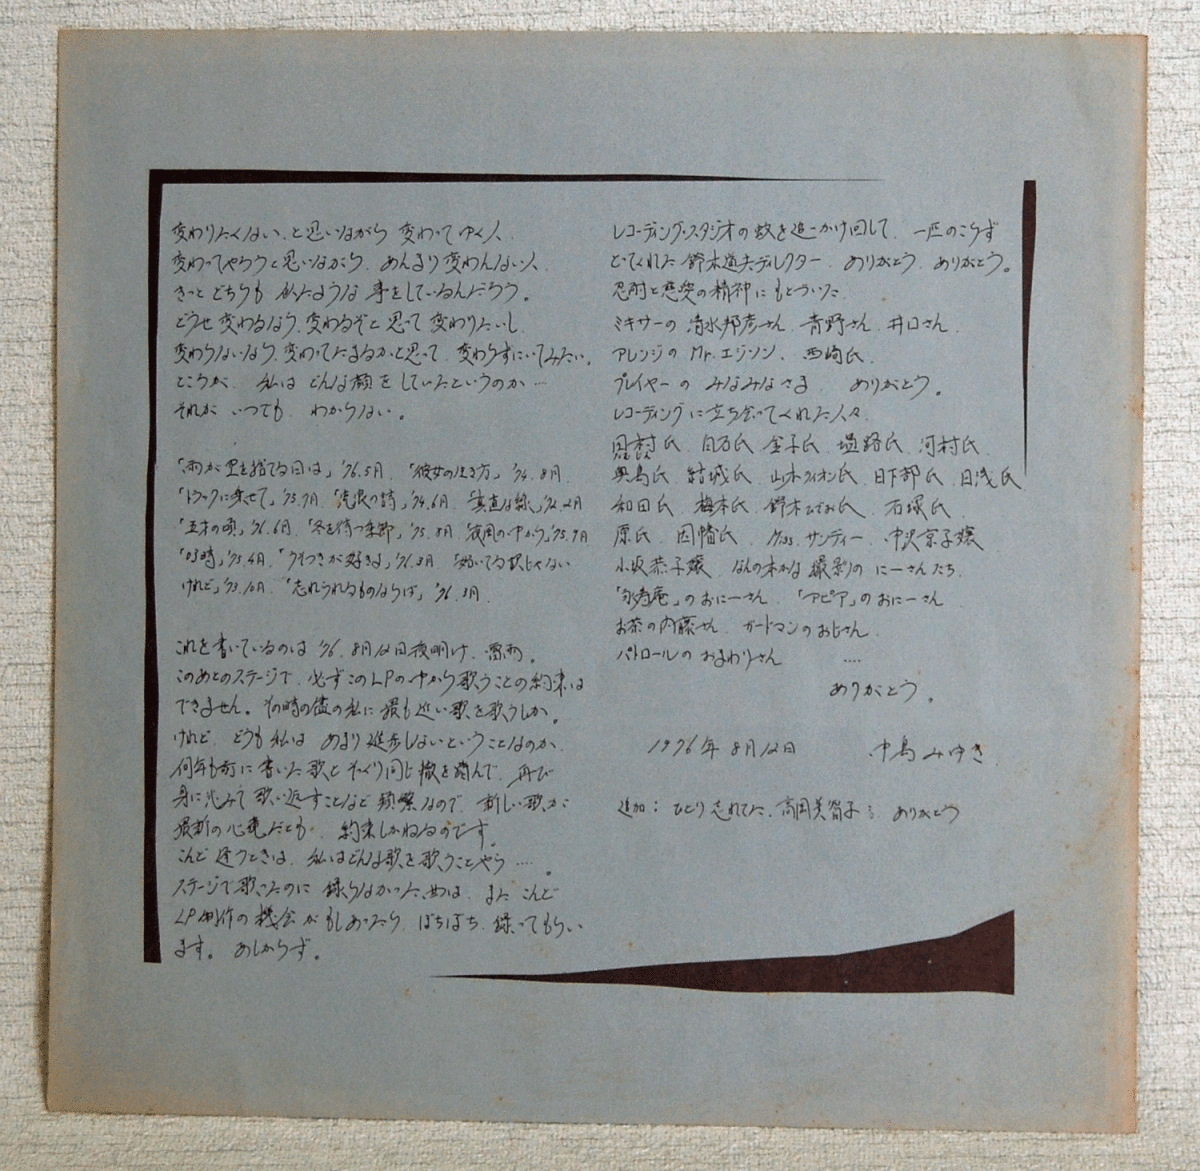 変わりたくない、と思いながら 変わってゆく人、
変わってやろうと思いながら、あんまり変わんない人、
きっと どちらも 似たような 事をしているんだろう。
どうせ変わるなら、変わるぞと思って変わりたいし、
変わらないなら、変わってたまるかと思って、変わらずにいてみたい。
ところが、私は どんな顔をしていたというのか…
それが いつでも、わからない。
「雨が空を捨てる日は」'76.5月、「彼女の生き方」'74.8月、
「トラックに乗せて」'73.9月、「流浪の詩」'74.6月、「真直な線」'72.2月
「五才の頃」'76.6月、「冬を待つ季節」'75.8月、「夜風の中から」'75.9月
「03時」'75.4月、「うそつきが好きよ」'76.3月、「妬いてる訳じゃない
けれど」'73.10月、「忘れられるものならば」'76.3月、
これを書いているのは '76.8月12日夜明け、雷雨。
このあとのステージで、必ずこのLPの中から歌うことの約束は
できません。その時の儘の私に最も近い歌を歌うしか。
けれど、どうも私は あまり進歩しないということなのか、
何年も前に書いた歌とそっくり同じ轍を踏んで、再び
身に沁みて歌い返すことなど頻繁なので、新しい歌が
最新の心境だとも、約束しかねるのです。
こんど 逢うときは、私はどんな歌を歌うことやら….。
ステージで歌ったのに 録らなかった、めは、また こんど
LP制作の機会がもしあったら、ぼちぼち 録ってもらい
ます。あしからず。
レコーディング・スタジオの蚊を追っかけ回して、一匹のこらず
とってくれた 鈴木道夫ディレクター、ありがとう、ありがとう。
忍耐と慈愛の精神にもとづいた
ミキサーの 清水邦彦さん、青野さん、井口さん、
アレンジの Mr.エジソン、西崎氏、
プレイヤーの みなみなさま、ありがとう。
レコーディングに立ち会ってくれた人々、
田村氏、白石氏、金子氏、塩路氏、河村氏、
奥島氏、結城氏、山木ライオン氏、日下部氏、日浅氏、
和田氏、梅本氏、鈴木ひでお氏、石塚氏、
原氏、因幡氏、Miss.サンディー、中沢京子嬢、
小坂恭子嬢、なんの本かな 撮影の にーさんたち、
「永寿庵」のおにーさん、「アピア」のおにーさん、
お茶の内藤さん、ガードマンのおじさん、
パトロールの おまわりさん ….
ありがとう。
1976年 8月12日 中島みゆき
追加:ひとり忘れてた、高田美智子さん、ありがとう